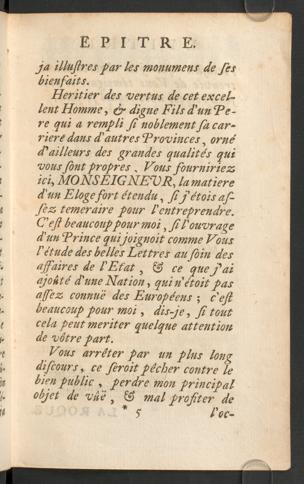 EPITRE.
ja illuſtres par les monumens de ſes
bienfaits.
Heritier des vertus de cet excel-
lent Homme, & digne Fils d'un Pe-
re qui a rempli ſi noblement ſa car-
riere dans d'autres Provinces, orné
d'ailleurs des grandes qualités qui
vous ſont propres. Vous fourniriez
ici, MONSEIGNEVR, la matiere
d'un Eloge fort étendu, ſi j'étois aſ-
ſez temeraire pour l'entreprendre.
C'eſt beaucoup pour moi, ſi l'ouvrage
d'un Prince qui joignoit comme Vous
l'étude des belles Lettres au ſoin des
affaires de l'Etat, & ce que j'ai
ajoûté d'une Nation, qui n'étoit pas
aſſez connuë des Européens; c'eſt
beaucoup pour moi, dis-je, ſi tout
cela peut meriter quelque attention
de vôtre part.
Vous arrêter par un plus long
diſcours, ce ſeroit pécher contre le
bien public, perdre mon principal
objet de vûë, & mal profiter de
* 5 l'oc-